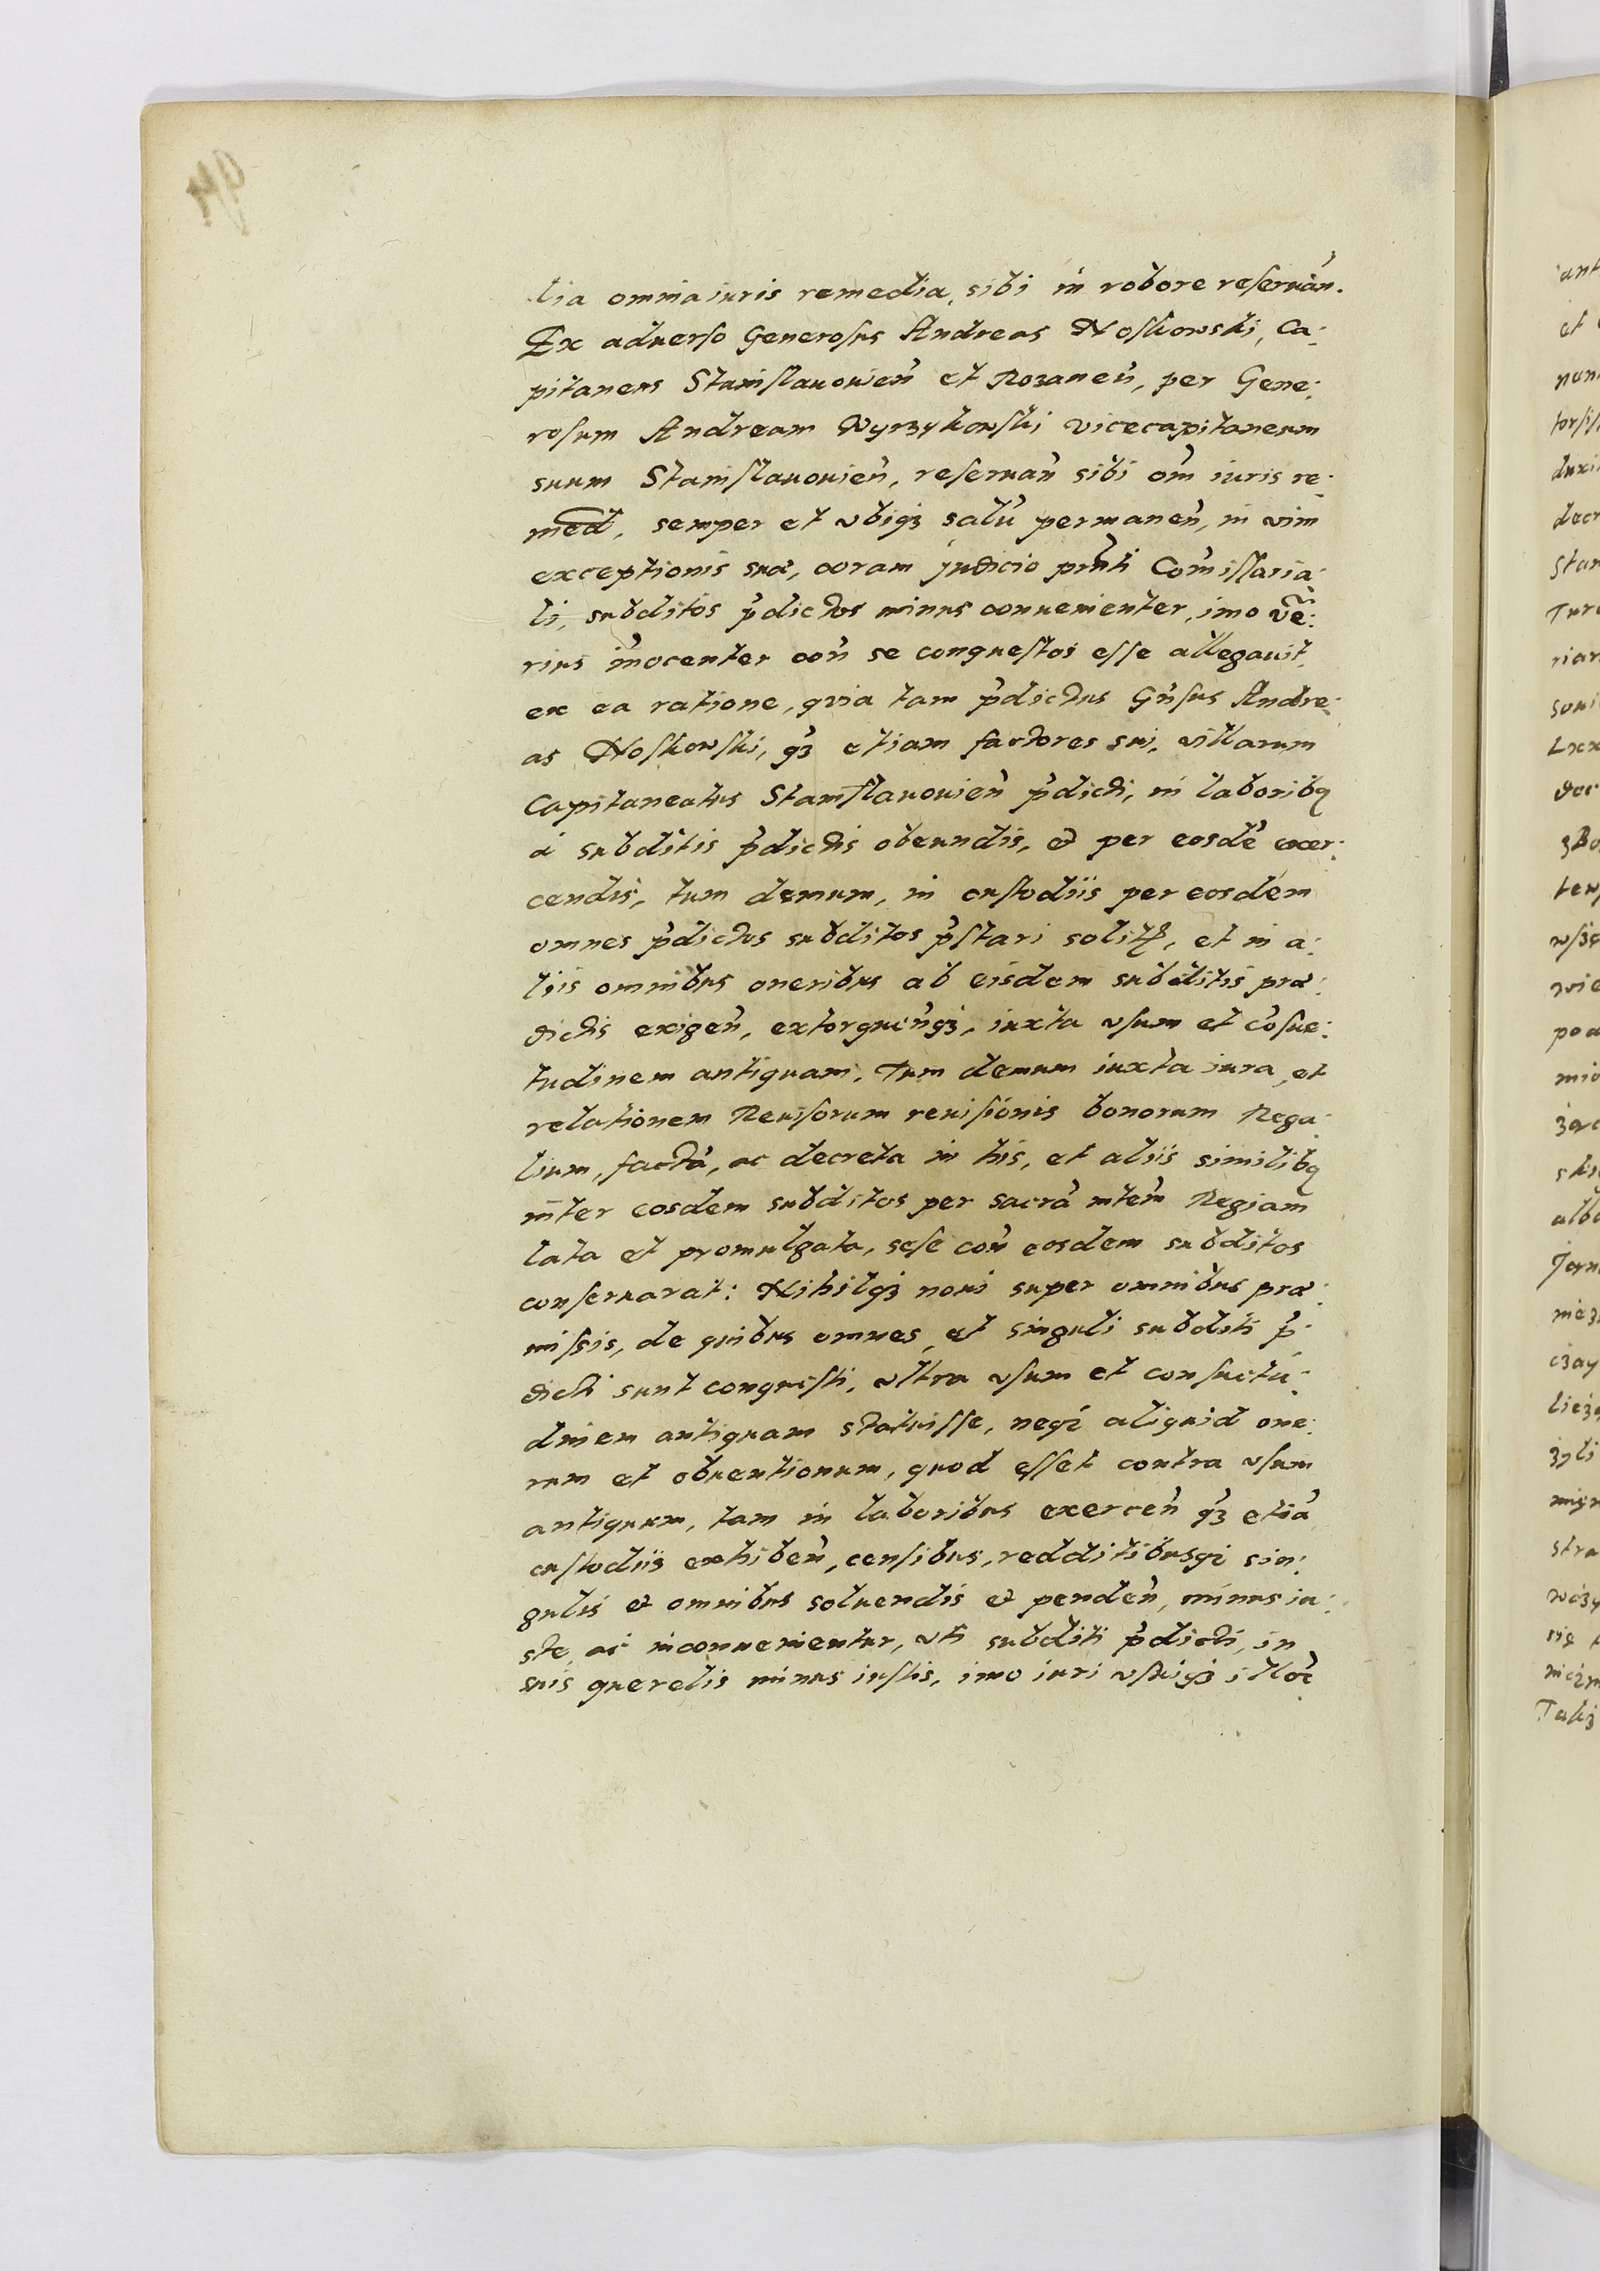 lia omnia iuris remedia, sibi in robore reseruan̄.
Ex aduerso Generosus Andreas Noskowski, Ca:
pitaneus Stanislauouien̄ et Rozanen̄, per Gene:
rosum Andream Wyrzykowski vicecapitaneum
suum Stanislauouien̄, reseruan̄ sibi om̄ iuris re:
med̄, semper et vbiqȝ salū permanen̄, in vim
exceptionis suæ, coram judicio pn̄ti Com̄issaria:
li, subditos p̄dictos minus conuenienter, imo ve:
rius in̄ocenter con̄ se conquestos esse allegauit,
ex ea ratione, quia tam p̄dictus Gn̄sus Andre:
as Noskowski, qȝ etiam factores sui, villarum
Capitaneatus Stanislauouien̄ p̄dicti, in laboribq
à subditis p̄dictis obeundis, & per eosdē exer:
cendis, tum demum, in custodiis per eosdem
omnes p̄dictos subditos p̄stari solitꝝ, et in a:
liis omnibus oneribus ab eisdem subditis præ:
dictis exigen̄, extorquen̄qȝ, iuxta vsum et cōsue:
tudinem antiquam. Tum demum iuxta iura et
relationem Reuisorum reuisionis bonorum Rega:
lium, factā, ac decreta in his, et aliis similibq
inter eosdem subditos per sacrā mtem̄ Regiam
lata et promulgata, sese con̄ eosdem subditos
conseruarat: Nihilqȝ noui super omnibus præ:
missis, de quibus omnes et singuli subditi p̄:
dicti sunt conquesti, vltra vsum et consuetu:
dinem antiquam statuisse, neqȝ aliquid one:
rum et obuentionum, quod esset contra vsum
antiquum, tam in laboribus exercen̄ qȝ etiā
custodiis exhiben̄, censibus, redditibusqȝ sin:
gulis & omnibus soluendis & penden̄, minus iu:
ste, ac inconuenienter, vti subditi p̄dicti, in
suis querelis minus iustis, imo iuri vsuiqȝ illoꝝ